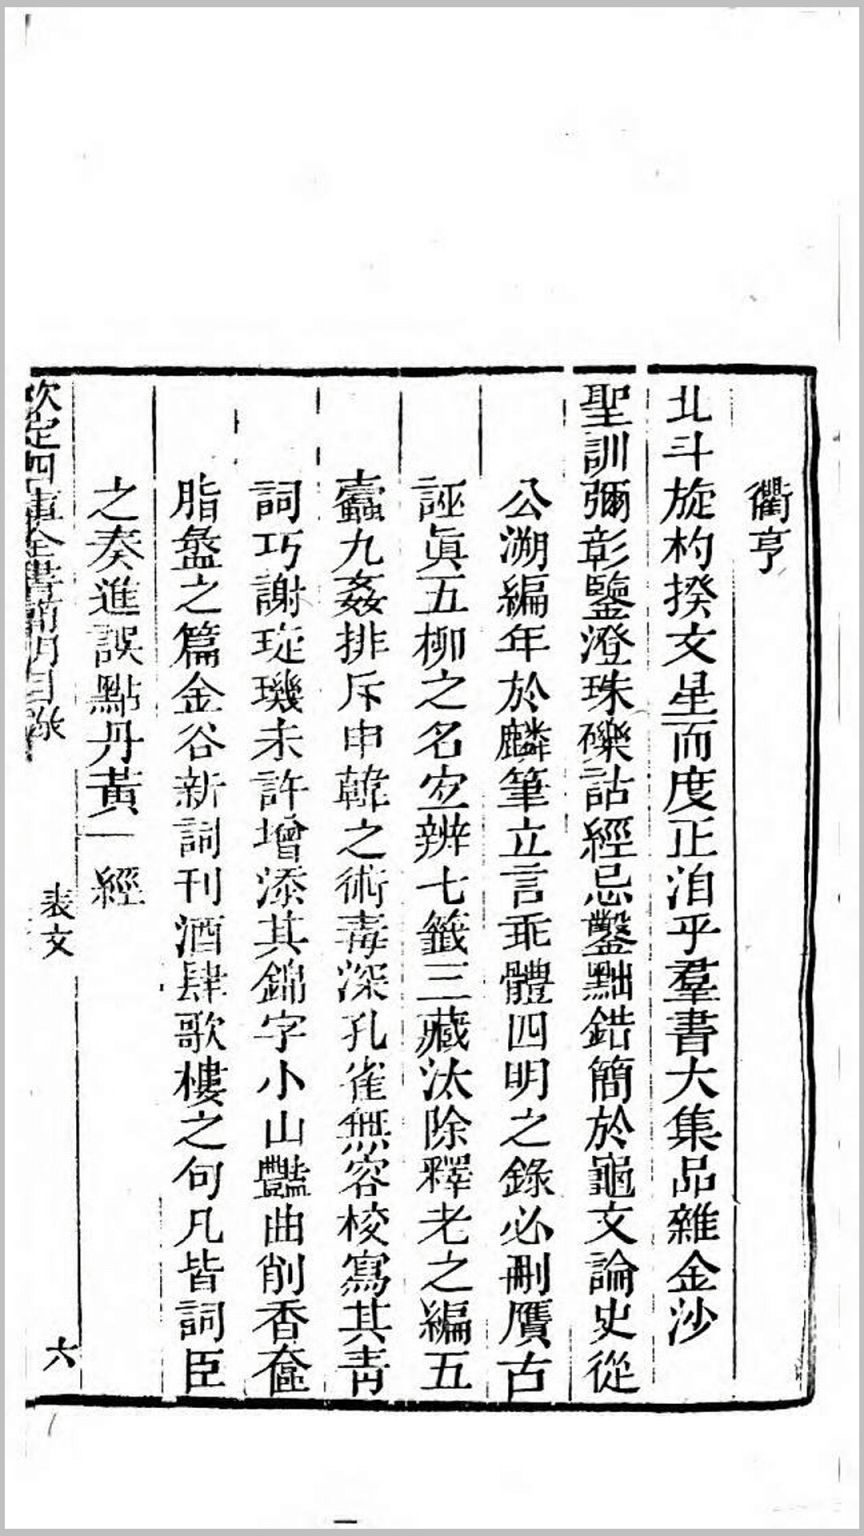 衢亨
北斗旋杓揆文星而度正洎乎羣書大集品雜金沙
聖訓彌彰鑒澄珠礫詁經忌鑿黜錯簡於龜文論史從
公溯編年於麟筆立言乖體四明之錄必刪贋古
誣眞五柳之名宜辨七籤三藏汰除釋老之編五
蠹九姦排斥申韓之術毒深孔雀無容校寫其靑
詞巧謝璇璣未許增添其錦字小山豔曲削香奩
脂盝之篇金谷新詞刊酒肆歌樓之句凡皆詞臣
之奏進誤點丹黃一經
欽定四庫全書簡明目錄
表文
六